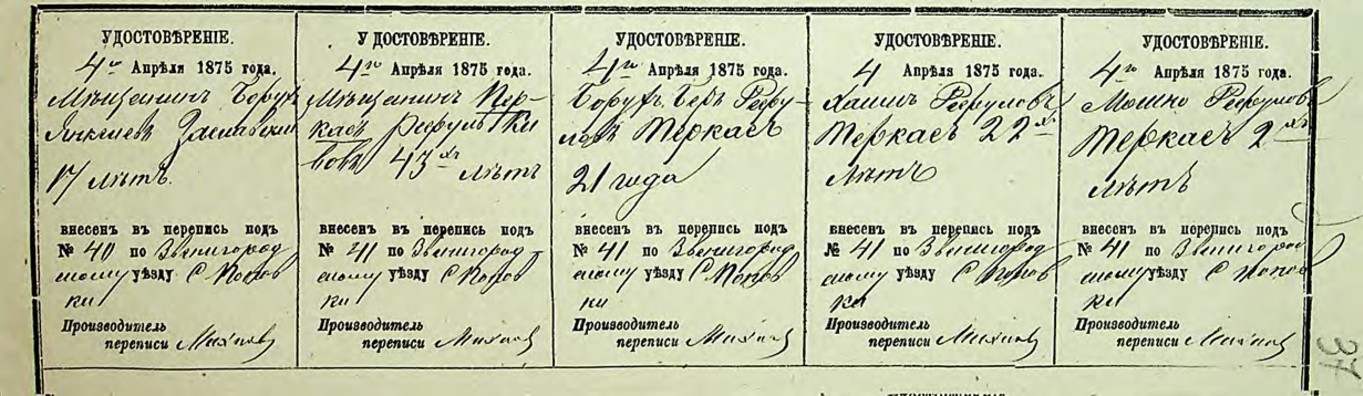 УДОСТОВѢРЕНІЕ.
4го Апрѣля 1875 года.
Мѣщанинъ Борухъ
Заславскій
17 лѣтъ.
внесенъ въ перепись подъ
№ 40 по Звенигород
скому уѣзду С Попов
ки
Производитель
переписи
УДОСТОВѢРЕНІЕ.
4го Апрѣля 1875 года.
Мѣщанинъ Тер-
касъ Рефулъ Ки
вовъ 43хъ лѣтъ
внесенъ въ перепись подъ
№ 41 по Звенигород
скому уѣзду С Попов
ки
Производитель
переписи
УДОСТОВѢРЕНІЕ.
4го Апрѣля 1875 года.
Борухъ Беръ Рефу-
ловъ Теркасъ
21 года
внесенъ въ перепись подъ
№ 41 по Звенигород
скому уѣзду С Попов
ки
Производитель
переписи
УДОСТОВѢРЕНІЕ.
4 Апрѣля 1875 года.
Хаимъ Рефуловъ
Теркасъ 22хъ
лѣтъ
внесенъ въ перепись подъ
№ 41 по Звенигород
скому уѣзду С Попов
ки
Производитель
переписи
УДОСТОВѢРЕНІЕ.
4го Апрѣля 1875 года.
Мошко Рефулов
Теркасъ 2хъ
лѣтъ
внесенъ въ перепись подъ
№ 41 по Звенигород
скому уѣзду С Попов
ки
Производитель
переписи
37